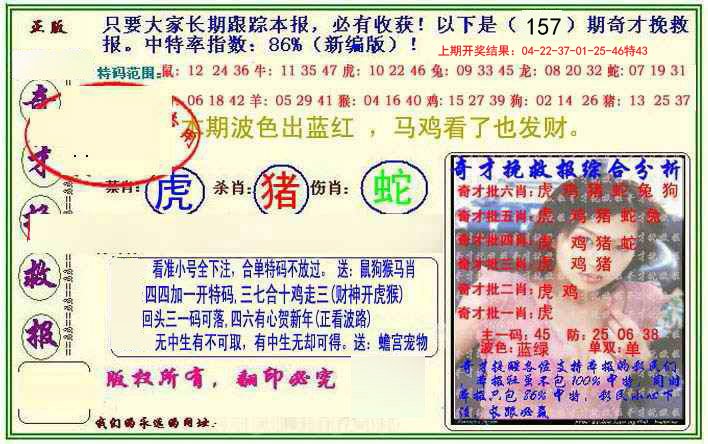 正版
只要大家长期跟踪本报，必有收获！以下是（157）期奇才挽救
报。中特率指数：86%（新编版）！
上期开奖结果：04-22-37-01-25-46特43
特码范围：鼠：12 24 36 牛：11 35 47 虎：10 22 46 兔：09 33 45 龙：08 20 32 蛇：07 19 31
06 18 42 羊：05 29 41 猴：04 16 40 鸡：15 27 39 狗：02 14 26 猪：13 25 37
本期波色出蓝红 ，马鸡看了也发财。
奇
才
救
报
禁肖：虎 杀肖：猪 伤肖：蛇
看准小号全下注，合单特码不放过。送：鼠狗猴马肖
四四加一开特码，三七合十鸡走三（财神开虎猴）
回头三一码可落，四六有心贺新年（正看波路）
无中生有不可取，有中生无却可得。送：蟾宫宠物
版权所有，翻印必究
我们的永远的网址：
奇才挽救报综合分析
奇才批六肖：虎 鸡 猪 蛇 兔 狗
奇才批五肖：虎 鸡 猪 蛇 兔
奇才批四肖：虎 鸡 猪 蛇
奇才批三肖：虎 鸡 猪
奇才批二肖：虎 鸡
奇才批一肖：虎
主一码：45 防：25 06 38
波色：蓝绿 单双：单
奇才提醒各位支持本报的彩民们
本报往虽不包100%中特，同时
本报只包86%中特，彩民小心下
注，长跟必赢